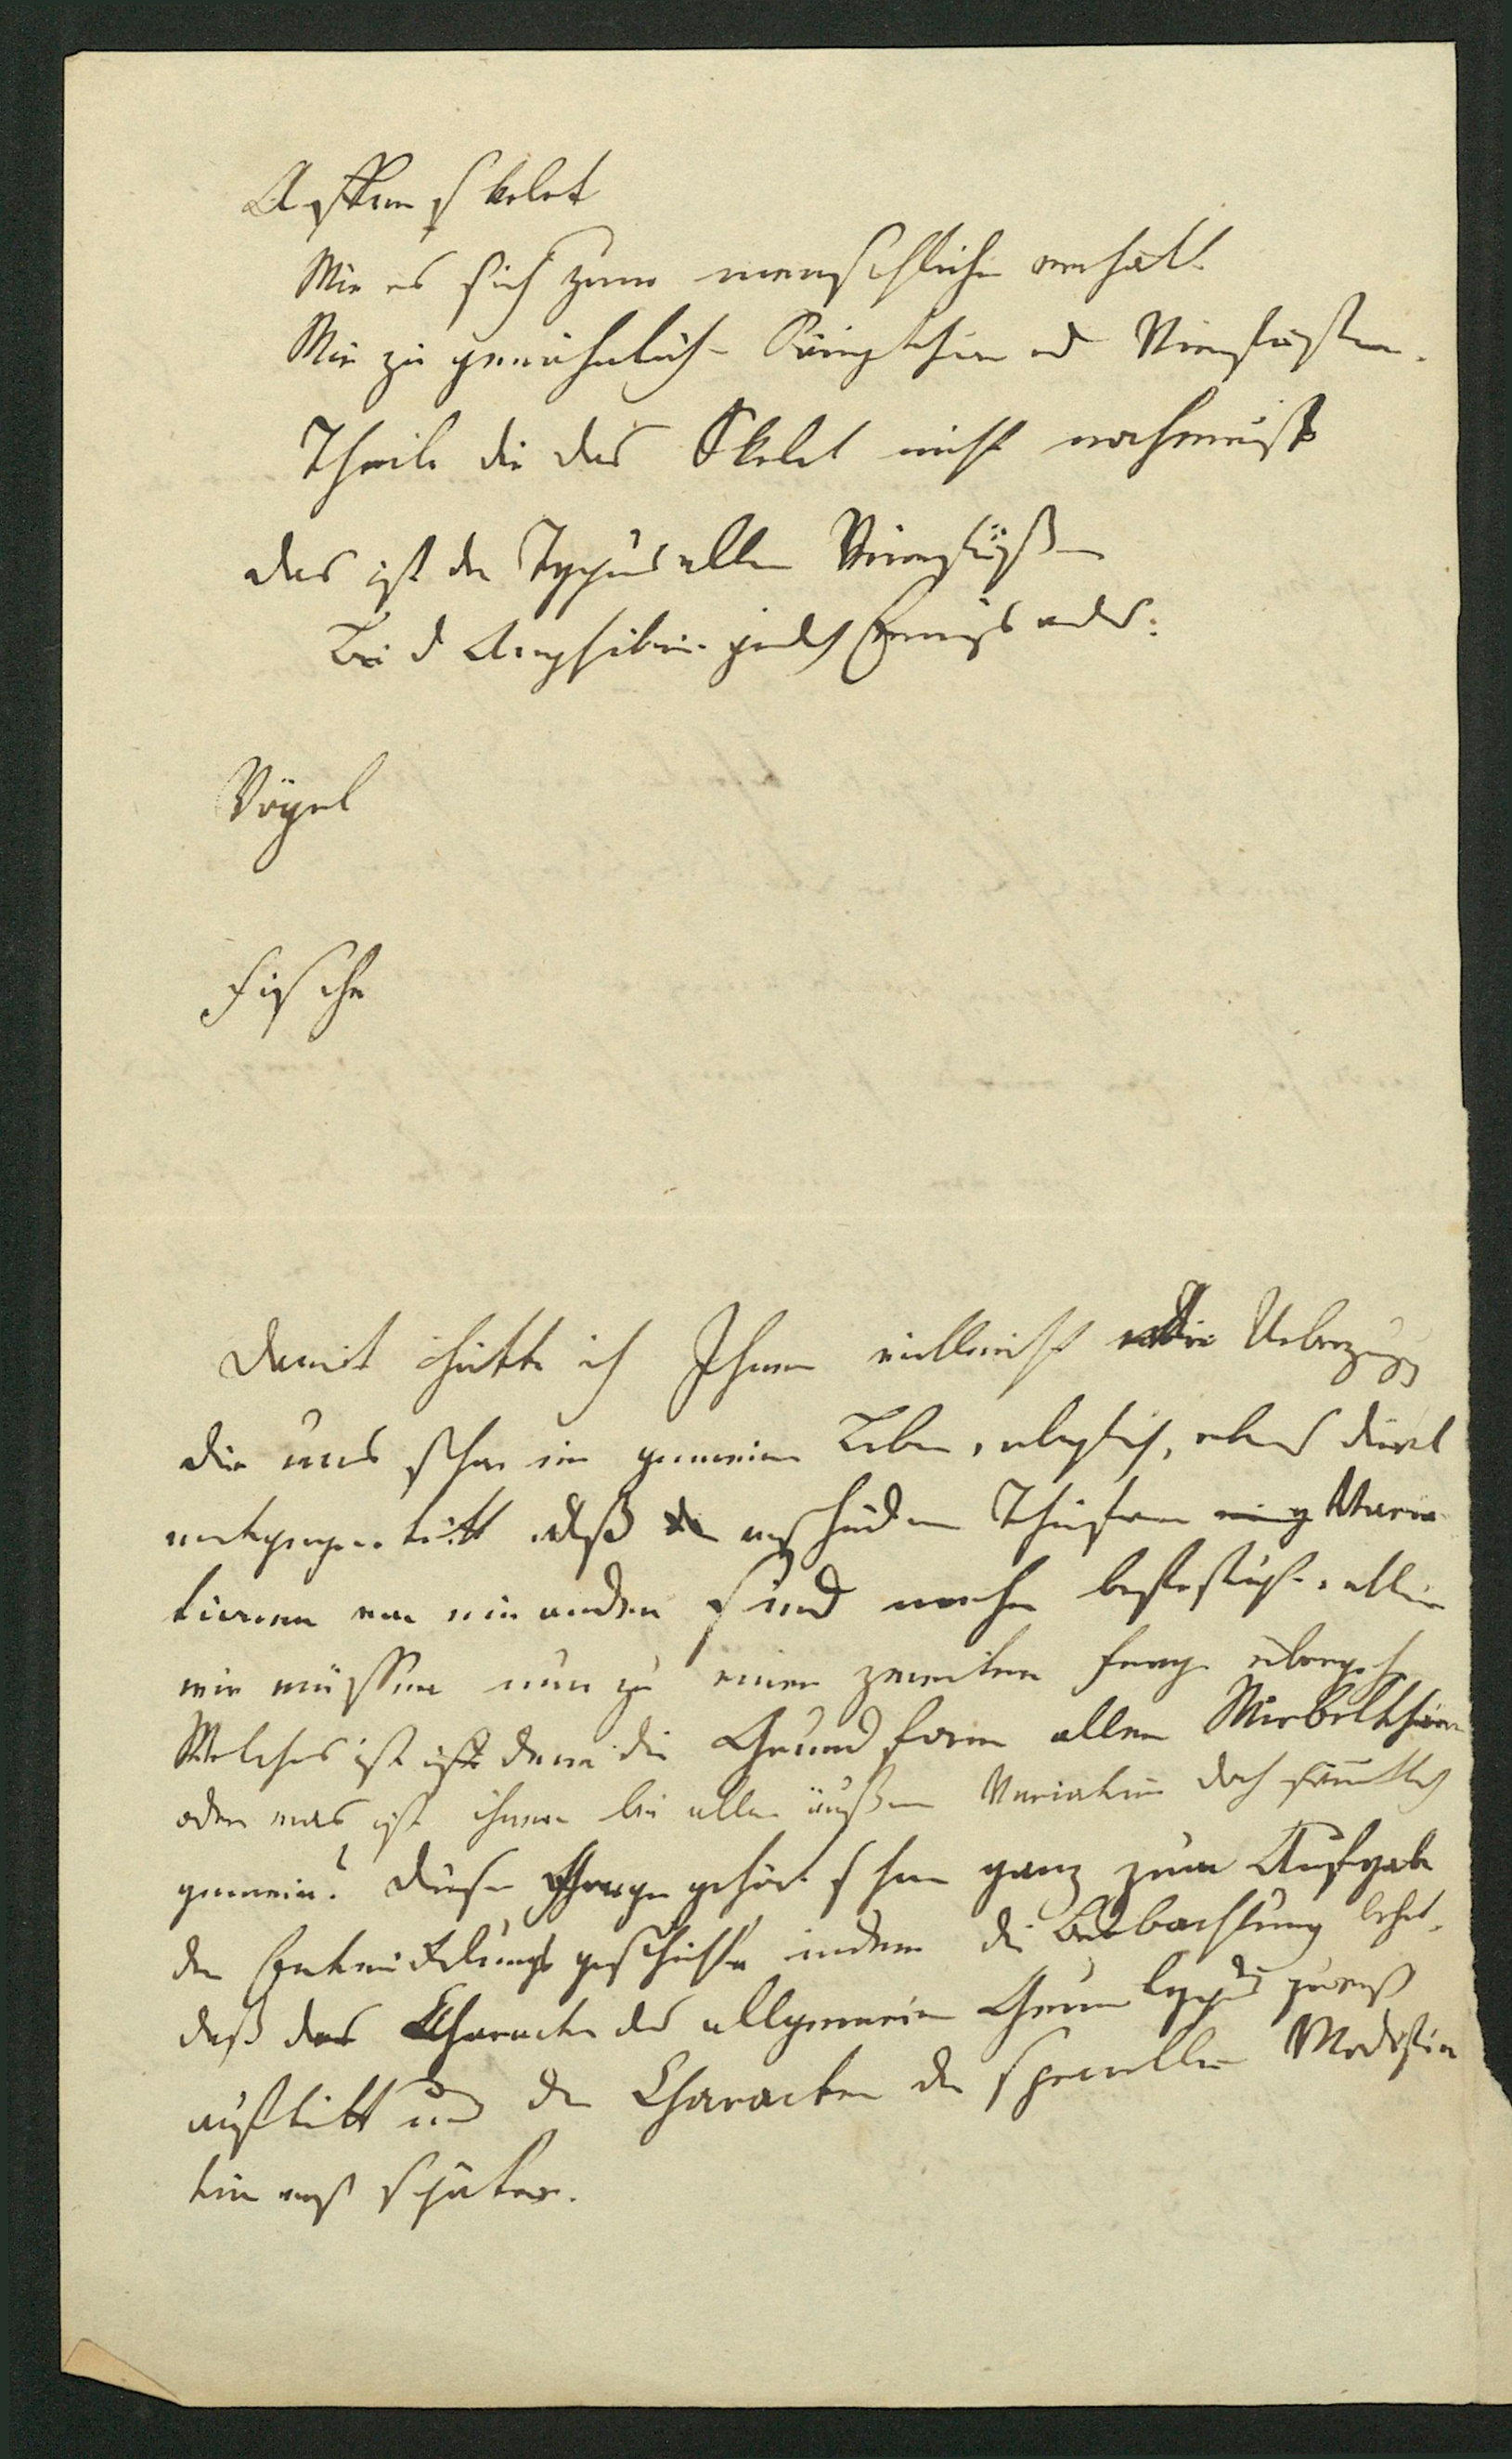 Affenskelet
Wie es sich zum menschlichen verhält.
Wie zu gewöhnlich Säugthieren Vierfüßern.
Theile die das Skelet nicht nachweist
das ist der Typus aller Vierfüßer
Bei d Amphibien
Vögel
Fische
Damit hätte ich Ihnen vielleicht die Ueberzeugg
die uns schon im gemeinen Leben
entgegentritt daß verschiedene Thierformen Varia-
tionen von einander sind mehr allein
wir müssen nun zu einer zweiten Frage übergeh
Welches ist ist denn die Grundform aller Wirbelthiere
oder was ist ihnen bei allen äußern Variation doch sämtlich
gemein? Diese Frage gehört schon ganz zum Aufgabe
der Entwickelungsgeschichte indem die Beobachtung lehrt,
daß der Character des allgemeinen Grundtypus zuerst
auftritt und der Character der speciellen Modifica
tion erst später.